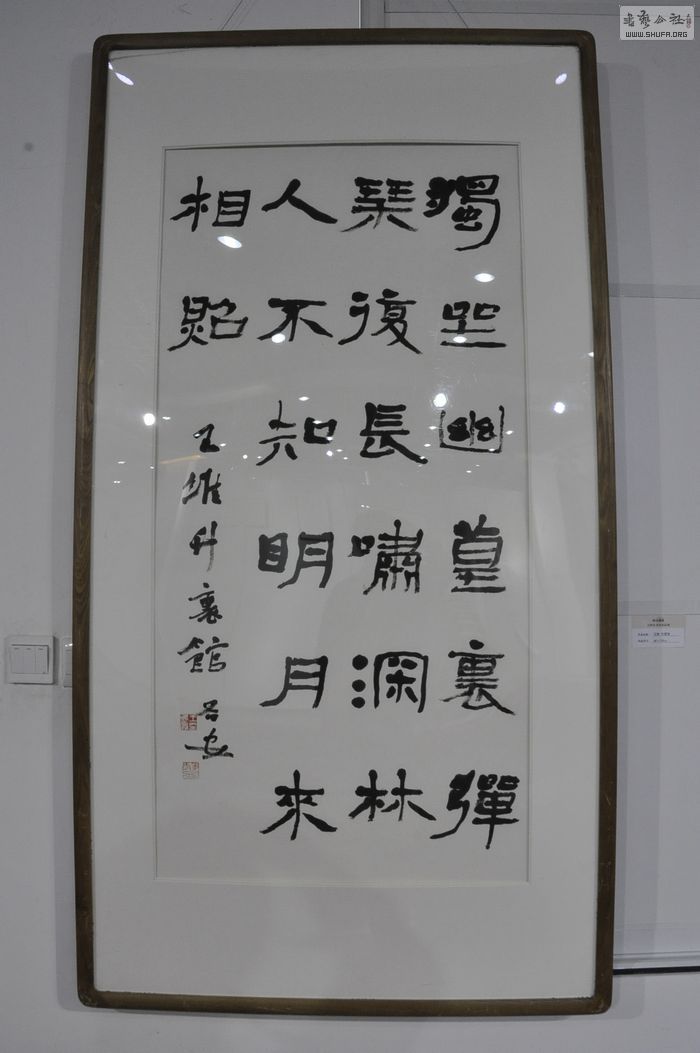 獨坐幽篁裏彈
琴復長嘯深林
人不知明月來
相照
王維竹裏館
書藝公社
WWW.SHUFA.ORG